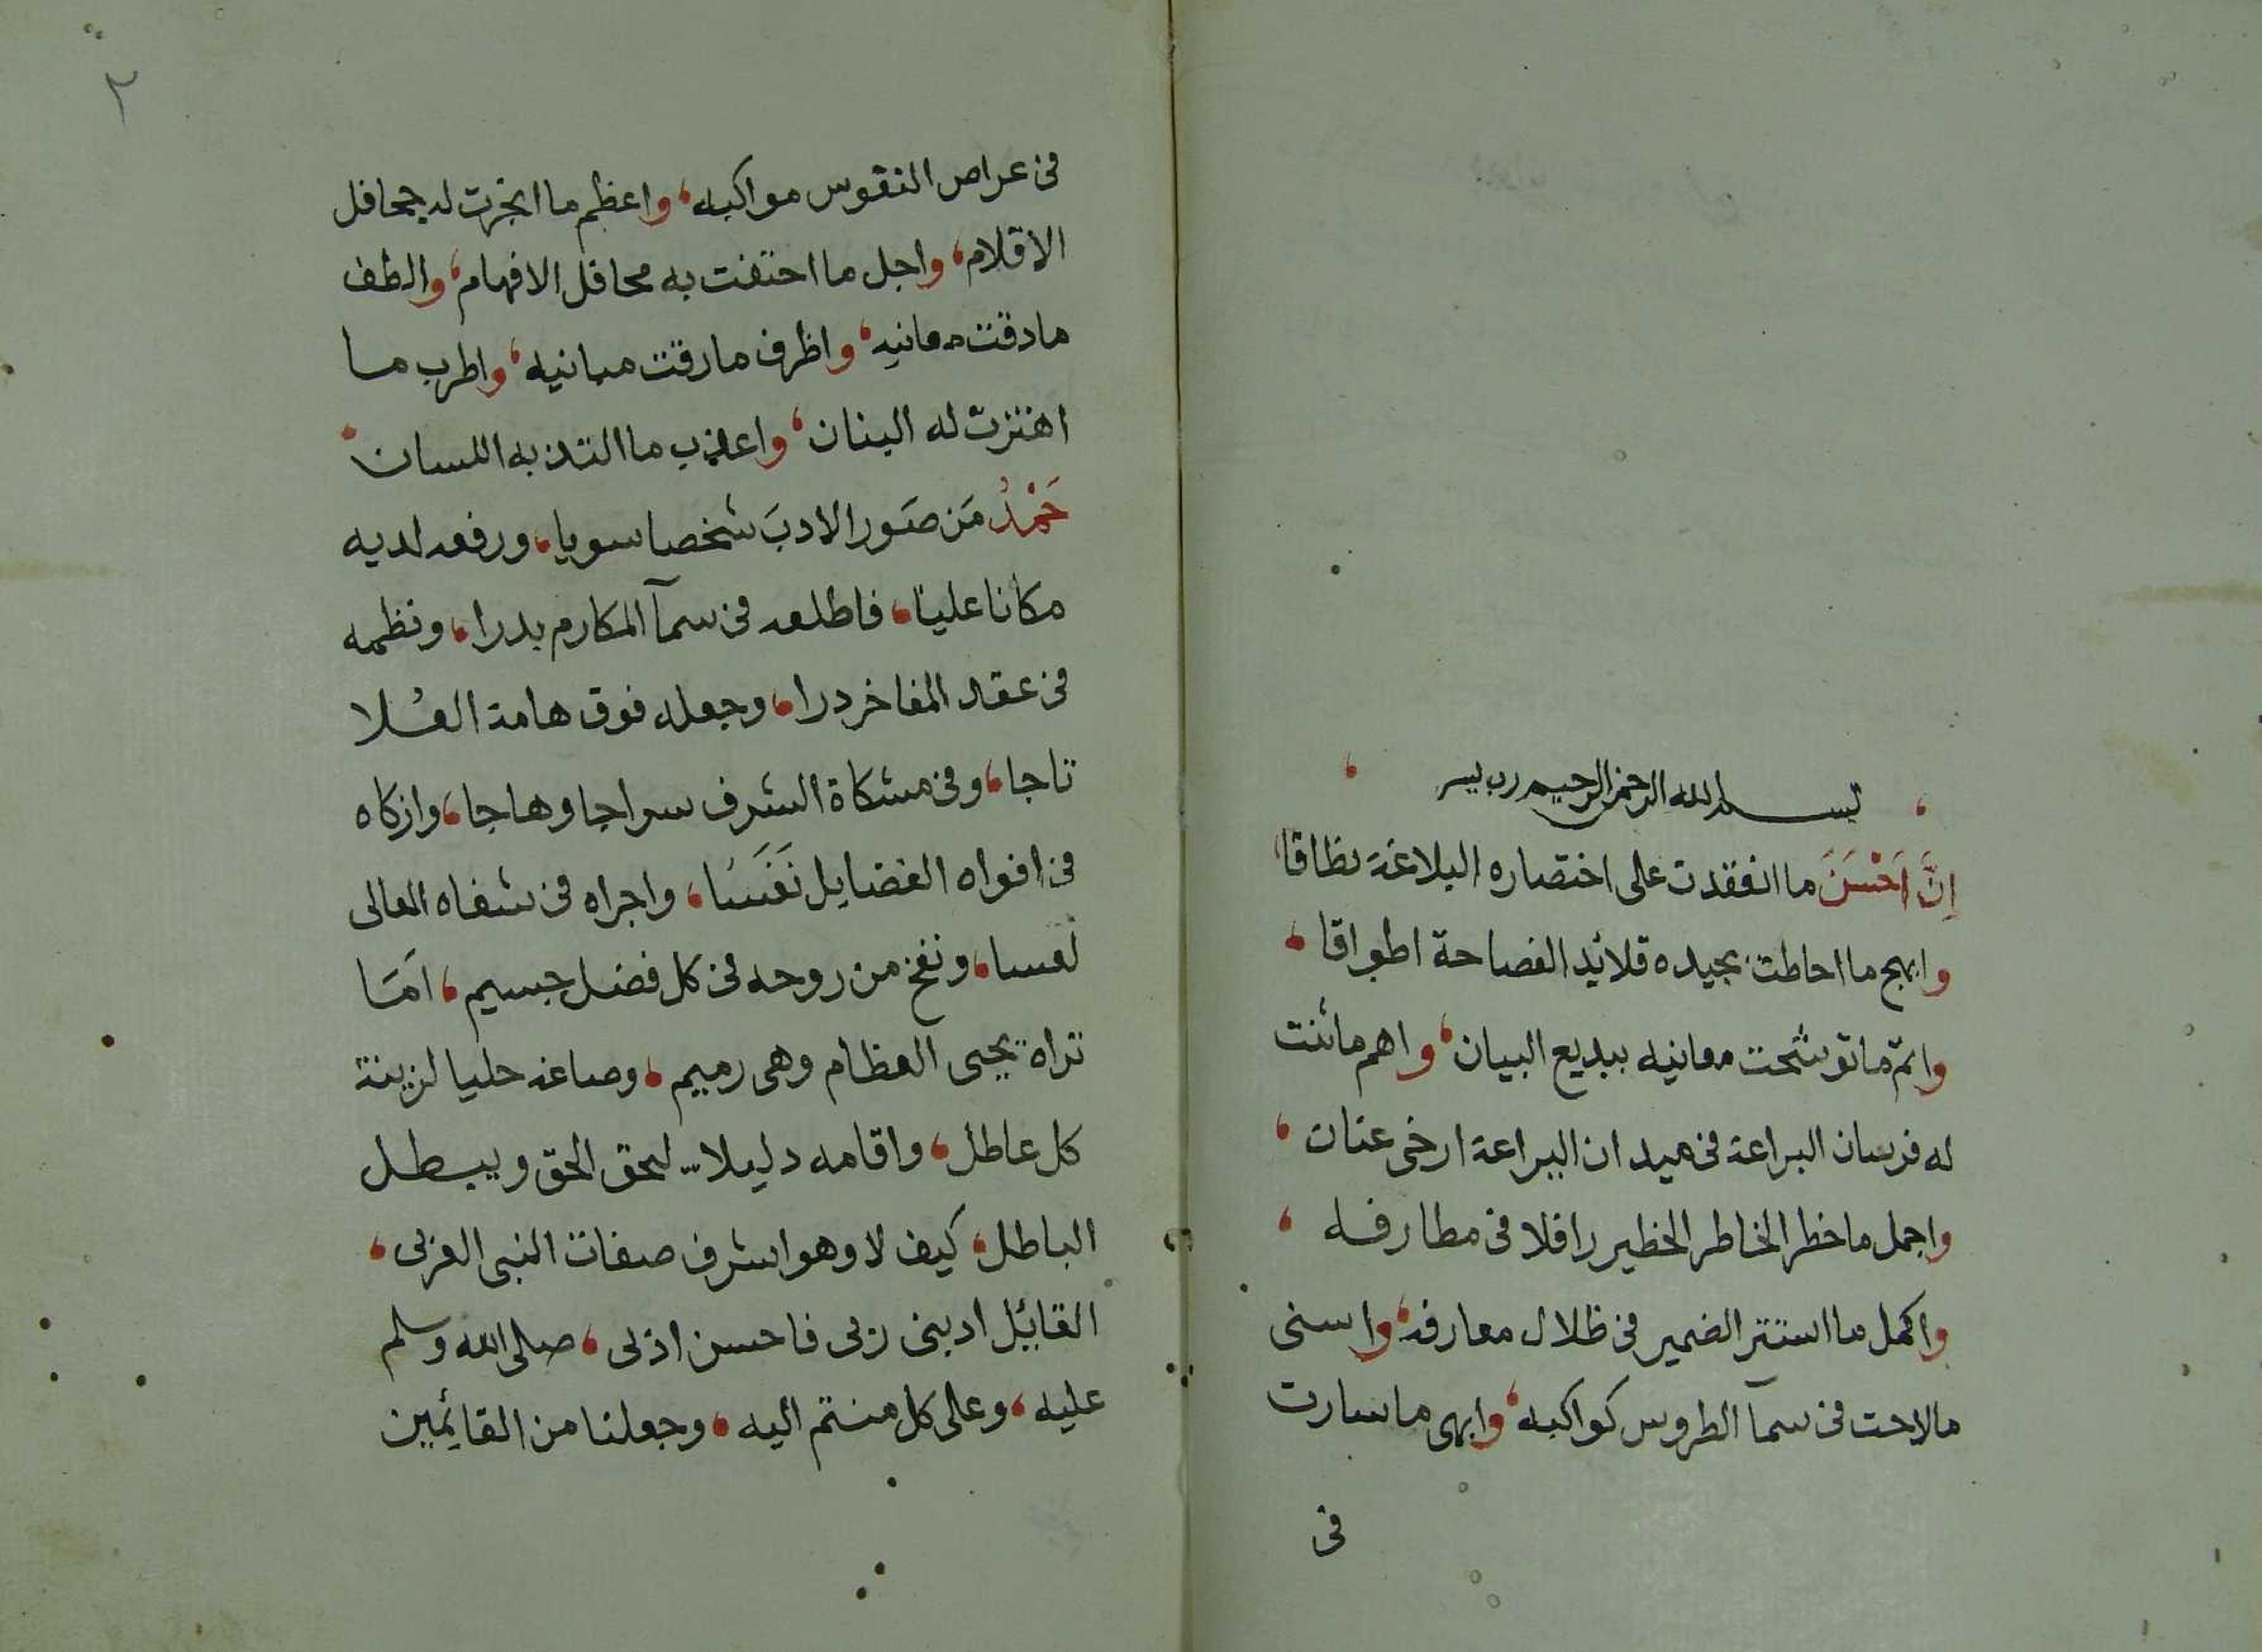 بسم الله الرحمن الرحيم رب يسر
اِنَّ اَحْسَنَ ما انعقدت على اختصاره البلاغة نطاقا،
وابهج ما احاطت بجيده قلائد الفصاحة اطواقا،
واتم ما توشحت معانيه ببديع البيان، واهم ما ثنت
له فرسان البراعة فى ميدان اليراعة ارخى عنان،
واجمل ما خطر الخاطر الخطير رافلا فى مطارفه،
واكمل ما استتر الضمير فى ظلال معارفه، واسنى
ما لاحت فى سمآ الطروس كواكبه، وابهى ما سارت
فى
٢
فى عراص النقوس مواكبه، واعظم ما انجرت له جحافل
الاقلام، واجل ما احتفت به محافل الافهام، والطف
ما دقت معانيه، واظرف ما رقت مبانيه، واطرب ما
اهتزت له البنان، واعذب ما التذ به اللسان،
حَمْدُ مَن صَور الادبَ شخصا سويا، ورفعه لديه
مكانا عليا، فاطلعه فى سمآ المكارم بدرا، ونظمه
فى عقد المفاخر درا، وجعله فوق هامة العُلا
تاجا، وفى مشكاة الشرف سراجا وهاجا، وازكاه
فى افواه الفضايل نَفَسَا، واجراه فى شفاه المعالى
لعسا، ونفخ من روحه فى كل فضل جسيم، امَا
تراه يحيى العظام وهى رميم، وصاغه حليا لزينة
كل عاطل، واقامه دليلا ليحق الحق ويبطل
الباطل، كيف لا وهو اشرف صفات النبى العربى،
القائل ادبنى ربى فاحسن ادبى، صلى الله وسلم
عليه، وعلى كل منتم اليه، وجعلنا من القائمين